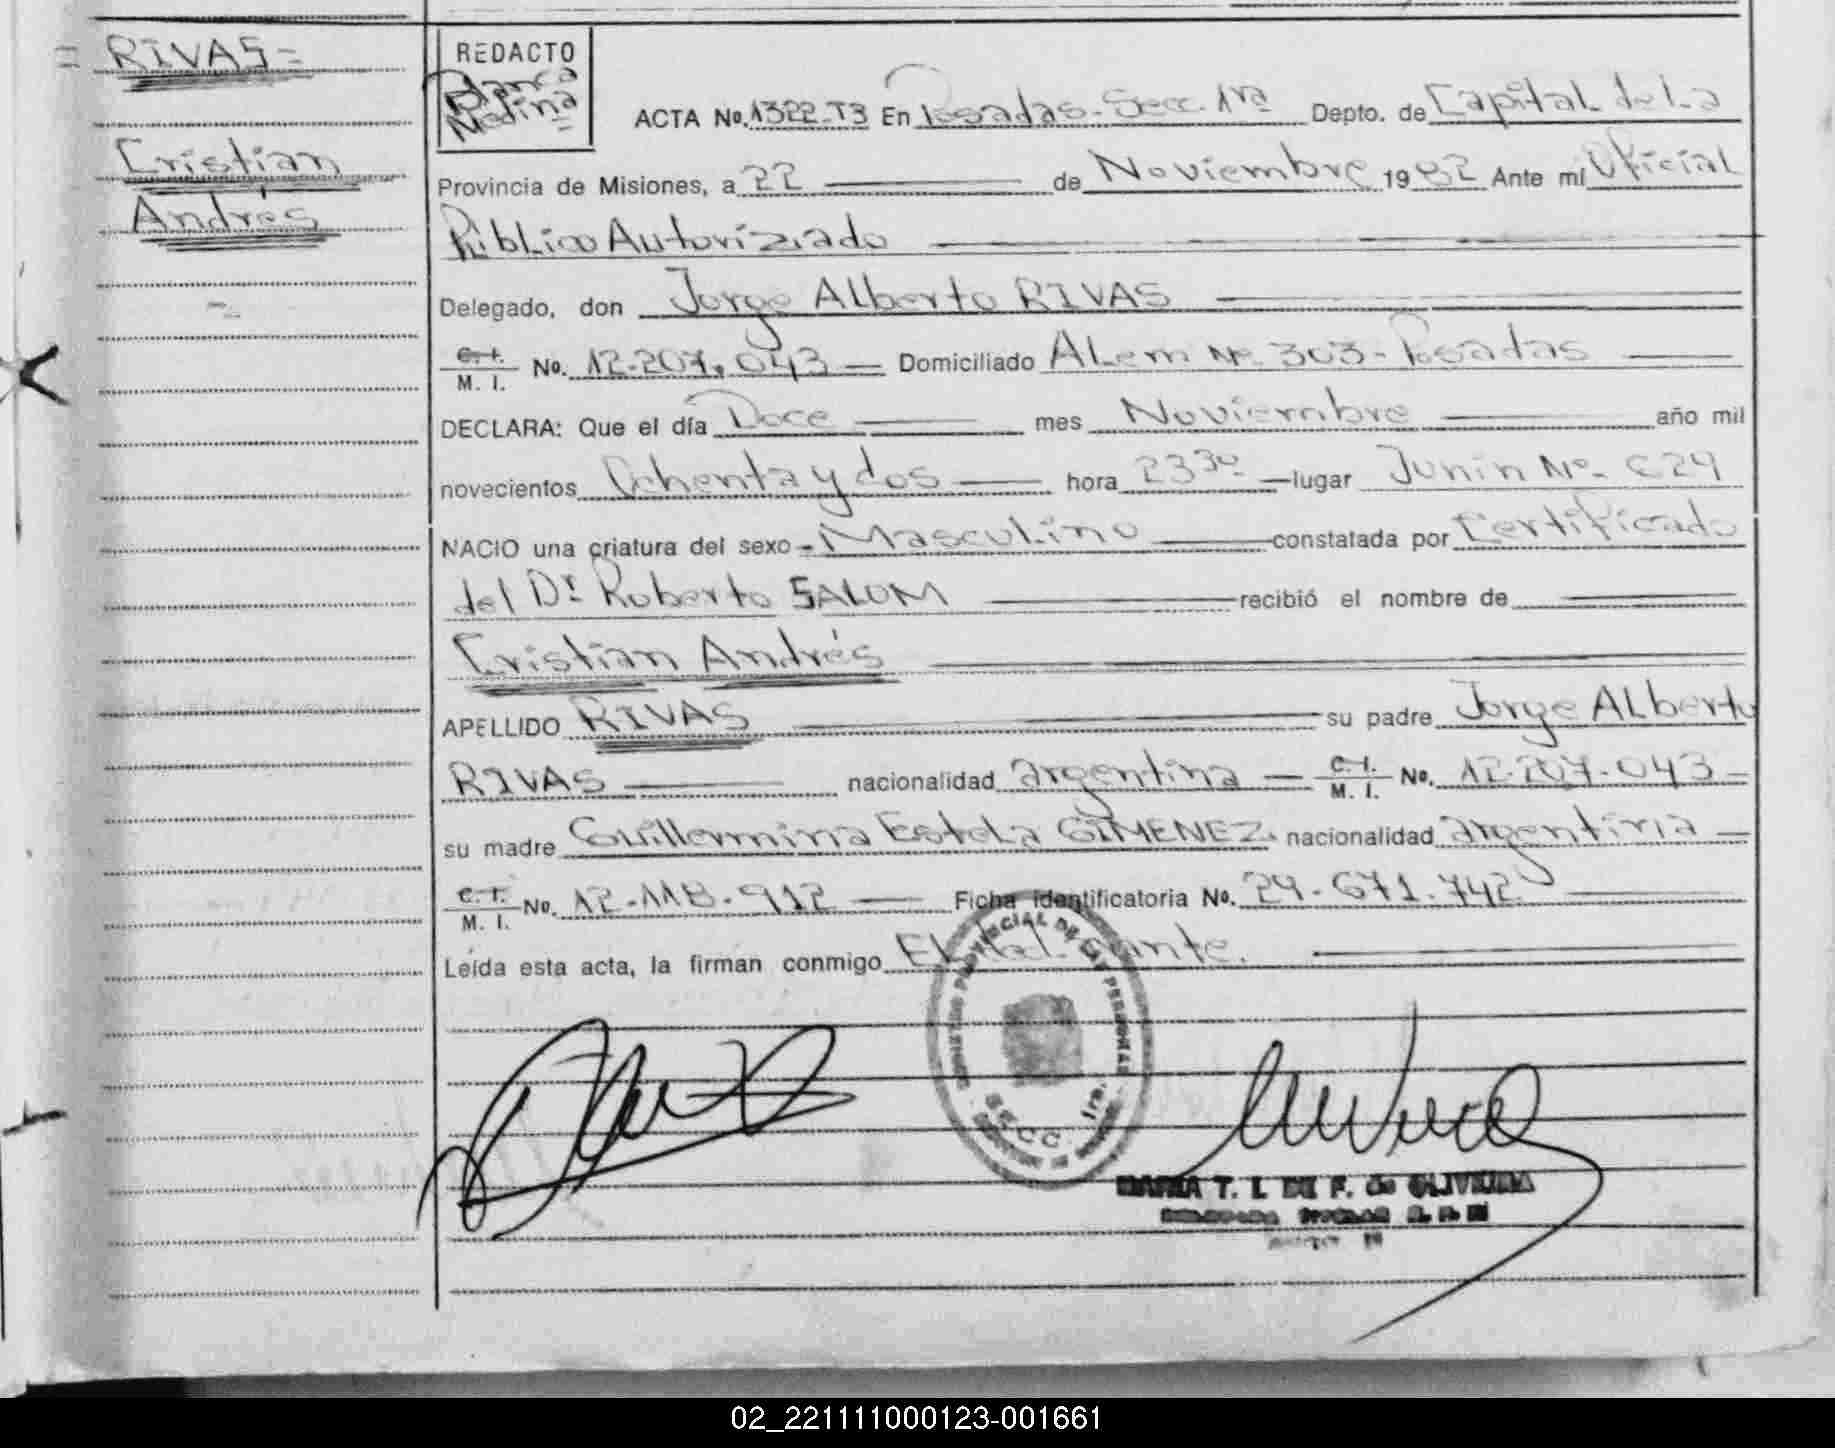 = RIVAS =
Cristian
Andrés
REDACTO
Blanca
Medina
ACTA No. 1322-T3 En Posadas-Secc. 1ra Depto. de Capital de La
Provincia de Misiones, a 22 de Noviembre 1982 Ante mí Oficial
Público Autorizado
Delegado, don Jorge ALberto RIVAS
C. I.
M. I. No. 12.207.043 Domiciliado ALem Nº 303-Posadas
DECLARA: Que el día Doce mes Noviembre año mil
novecientos Ochenta y dos hora 23 30 lugar Junin Nº
NACIO una criatura del sexo Masculino constatada por Certificado
del Dr Roberto SALOM recibió el nombre de
Cristian Andrés
APELLIDO RIVAS su padre Jorge ALberto
RIVAS nacionalidad argentina C. I. M. I. No. 12.207.043
su madre Guillermina Estela GIMENEZ nacionalidad argentina
C. I. M. I. No. 12.118.912 Ficha identificatoria No. 29.671.742
Leída esta acta, la firman conmigo EL
REGISTRO PROVINCIAL DE LAS PERSONAS
1ra.
MARIA T. I. DE F. de OLIVEIRA
02_221111000123-001661